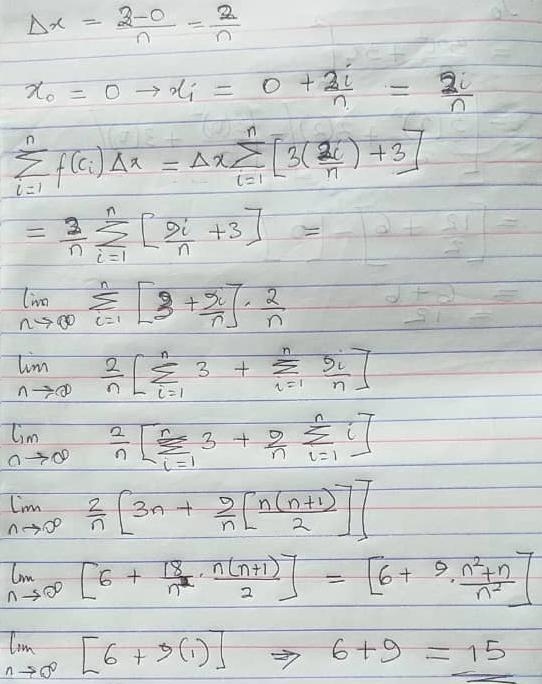 Δx = 2-0/n = 2/n
x₀ = 0 → xᵢ = 0 + 2i/n = 2i/n
n∑i=1 f(cᵢ) Δx = Δx n∑i=1 [3(2i/n) + 3]
= 2/n n∑i=1 [9i/n + 3] =
lim n→∞ n∑i=1 [3 + 9i/n] · 2/n
lim n→∞ 2/n [n∑i=1 3 + n∑i=1 9i/n]
lim n→∞ 2/n [n∑i=1 3 + 9/n n∑i=1 i]
lim n→∞ 2/n [3n + 9/n [n(n+1)/2]]
lim n→∞ [6 + 18/n² · n(n+1)/2] = [6 + 9 · n²+n/n²]
lim n→∞ [6 + 9(1)] ⇒ 6+9 = 15